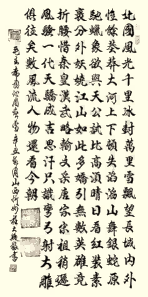 北國風光千里冰封萬里雪飄望長城內外
惟餘莽莽大河上下頓失滔滔山舞銀蛇原
馳蠟象欲與天公試比高須晴日看紅裝素
裹分外妖嬈江山如此多嬌引無數英雄競
折腰惜秦皇漢武略輸文采唐宗宋祖稍遜
風騷一代天驕成吉思汗只識彎弓射大雕
俱往矣數風流人物還看今朝
毛主席詞沁園春雪